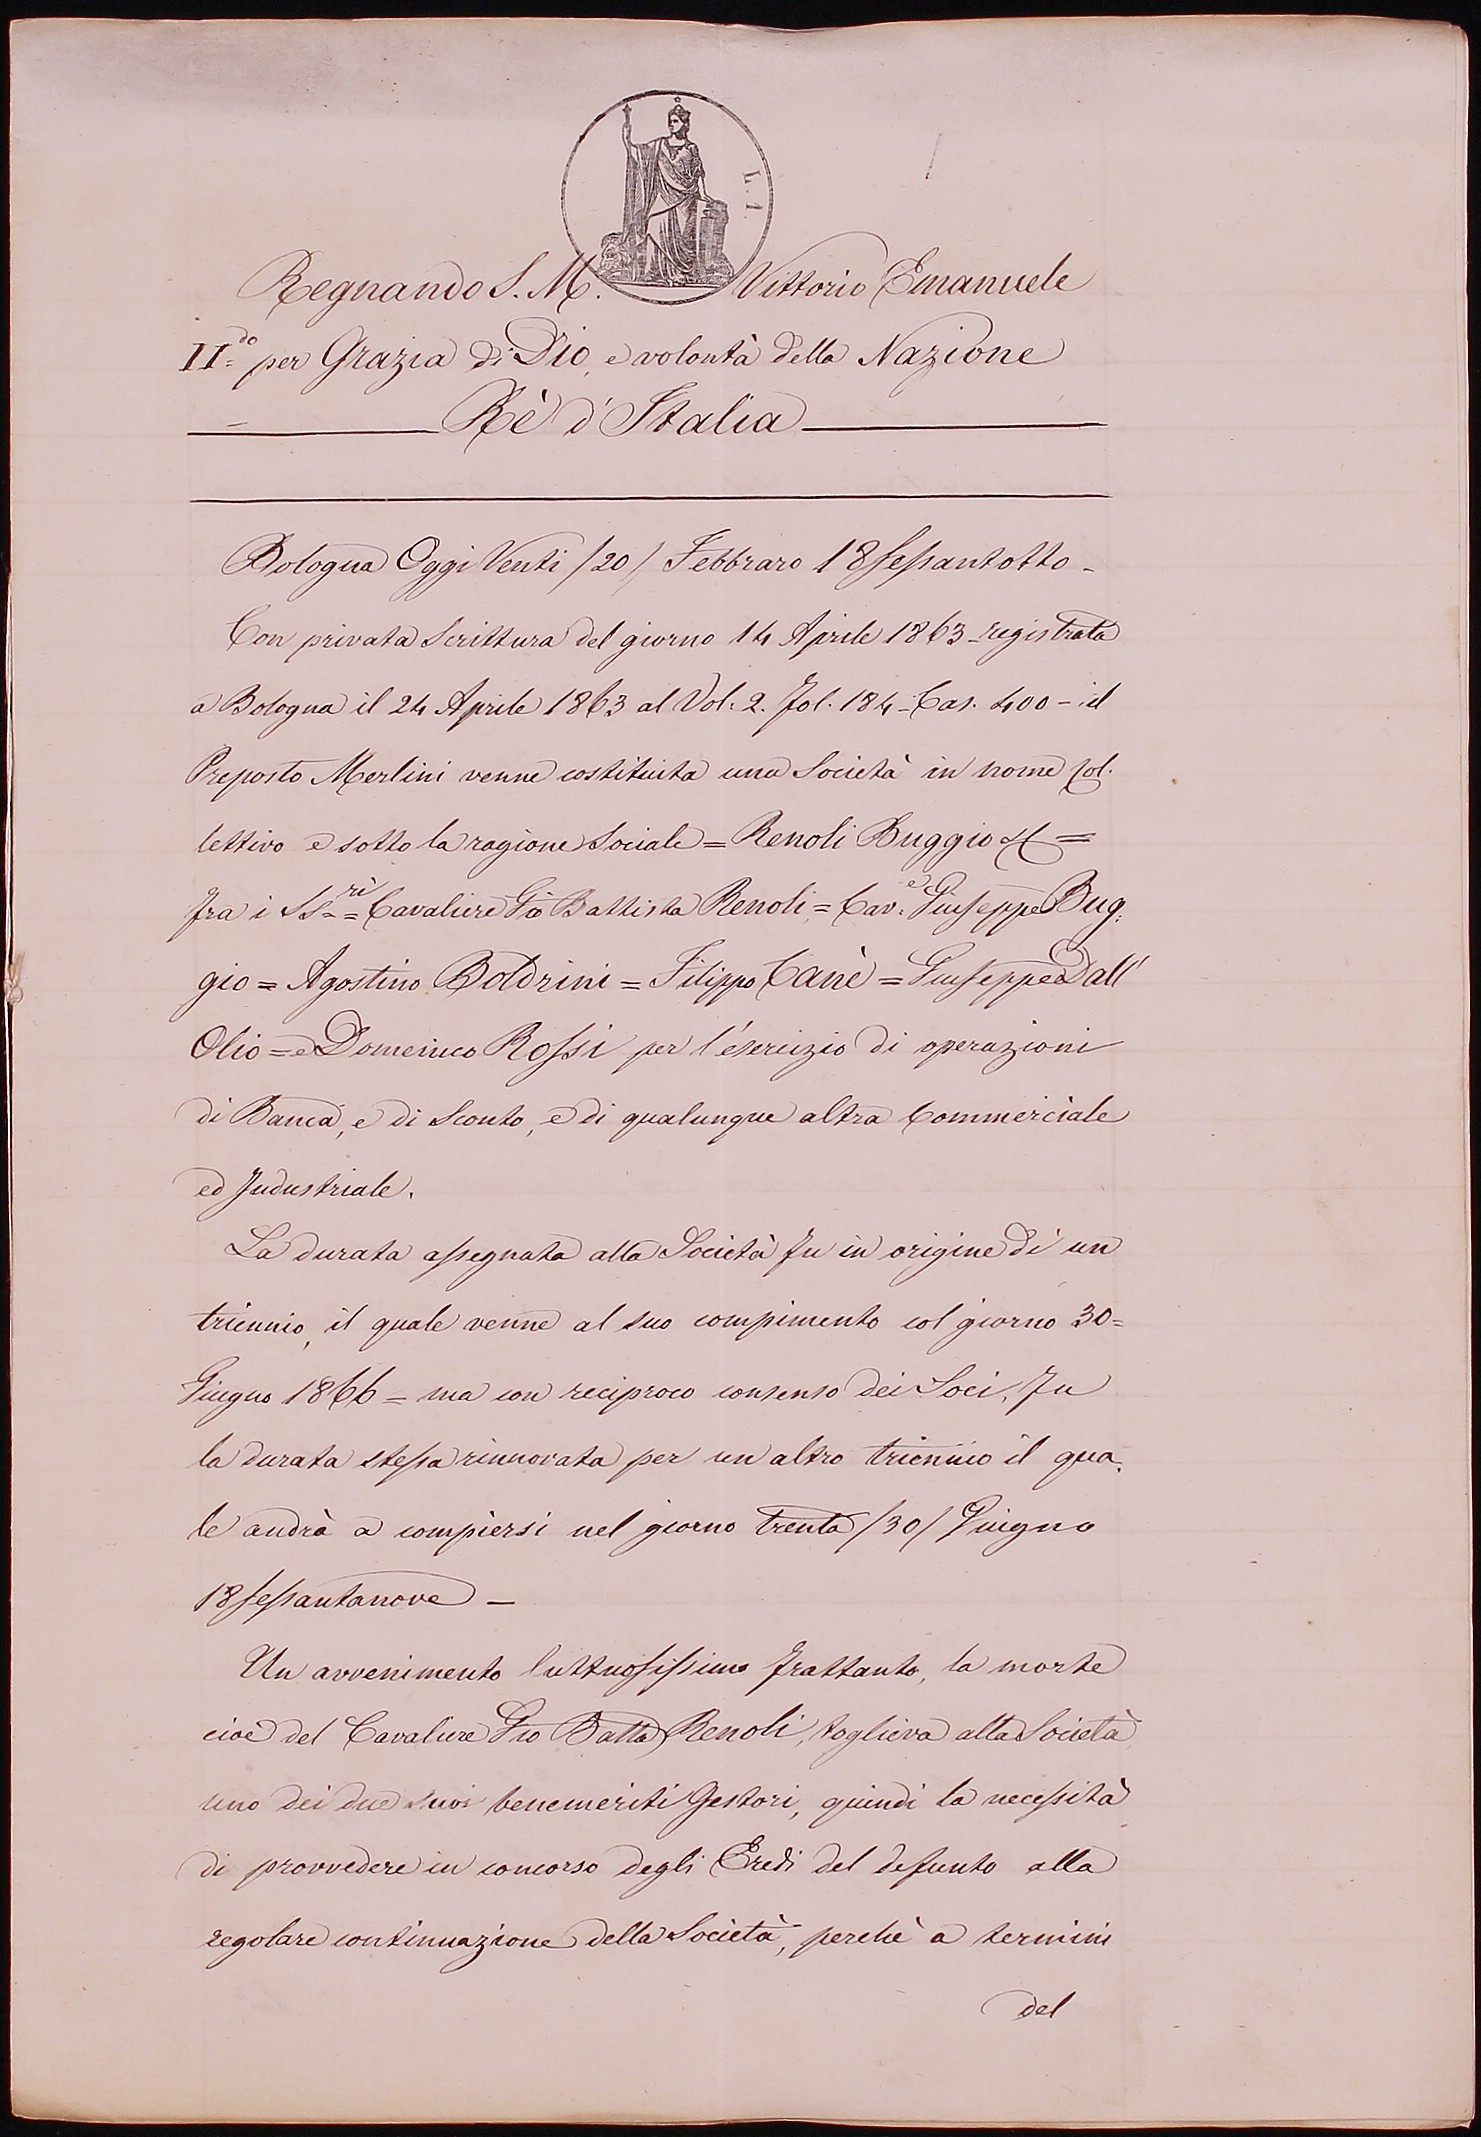 L. 1.
Regnando S. M. Vittorio Emanuele
II.do per Grazia di Dio, e volontà della Nazione
Rè d'Italia
Bologna Oggi Venti /20/ Febbraro 18sessantotto -
Con privata Scrittura del giorno 14 Aprile 1863 - registrata
a Bologna il 24 Aprile 1863 al Vol. 2. Fol. 184 - Cas. 400 - il
Preposto Merlini venne costituita una Società in nome Col-
lettivo e sotto la ragione Sociale = Renoli Buggio &C =
Fra i SS.ri = Cavaliere Gio Battista Renoli = Cav.e Giuseppe Bug-
gio = Agostino Boldrini = Filippo Canè = Giuseppe Dall'
Olio = e Domenico Rossi per l'esercizio di operazioni
di Banca, e di Sconto, e di qualunque altra Commerciale
ed Industriale.
La durata assegnata alla Società fu in origine di un
triennio, il quale venne al suo compimento col giorno 30=
Giugno 1866 = ma con reciproco consenso dei Soci, fu
la durata stessa rinnovata per un altro triennio il qua-
le andrà a compiersi nel giorno trenta /30/ Giugno
18sessantanove -
Un avvenimento luttuosissimo frattanto, la morte
cioè del Cavaliere Gio Batta Renoli, toglieva alla Società
uno dei due suoi benemeriti Gestori, quindi la necessità
di provvedere in concorso degli Eredi del defunto alla
regolare continuazione della Società, perchè a termini
del